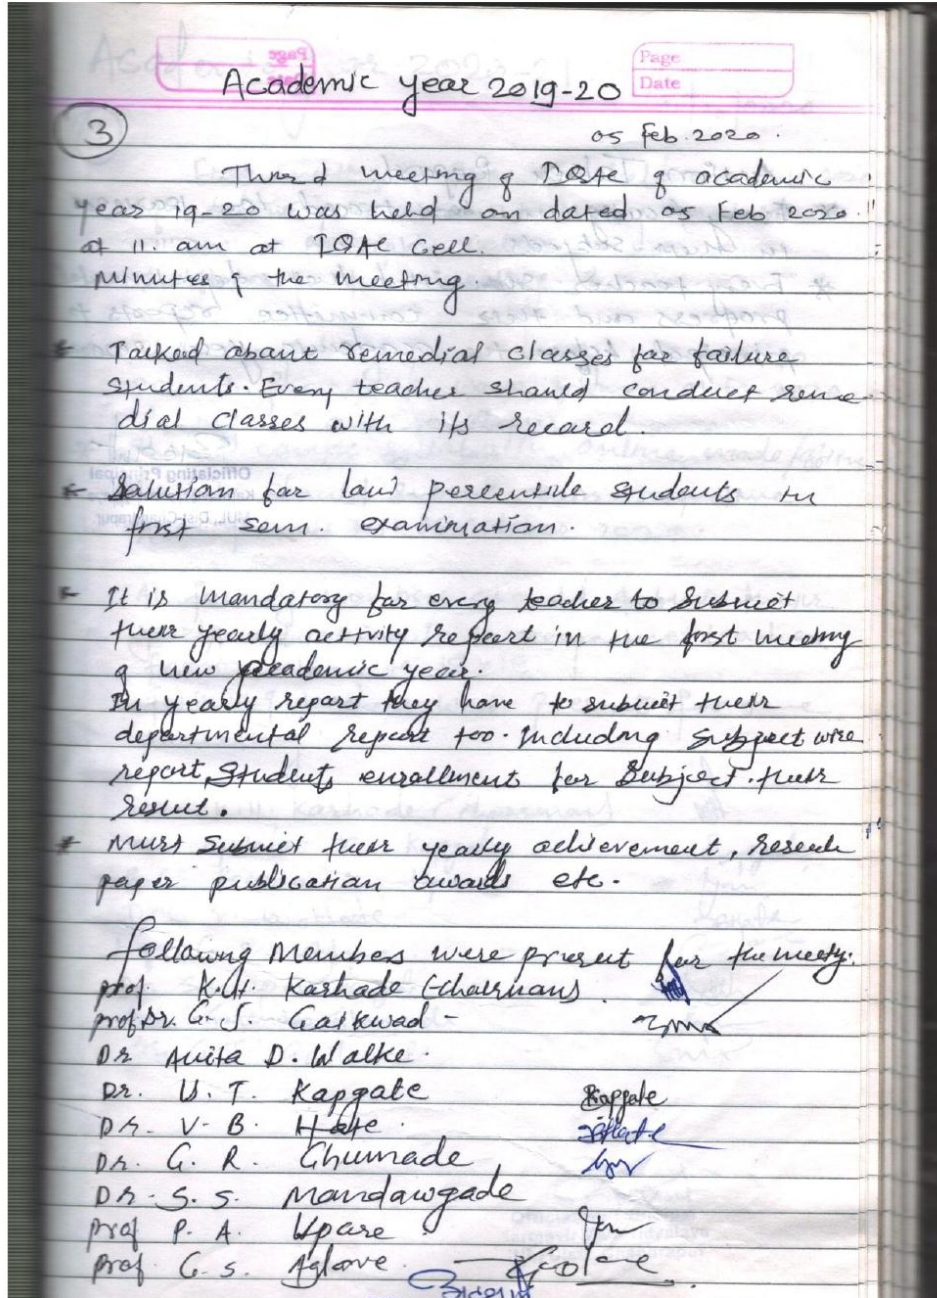 Page
Date
Academic year 2019-20
3
05 Feb. 2020.
Third meeting of IQAC of academic
year 19-20 was held on dated 05 Feb 2020.
at 11. am at IQAC Cell.
Minutes of the meeting.
* Talked about remedial classes for failure
students. Every teacher should conduct reme-
dial classes with its record.
* Solution for law percentile students in
first sem. examination.
* It is mandatory for every teacher to submit
their yearly activity report in the first meeting
of new academic year.
In yearly report they have to submit their
departmental report too. Including subject wise
report, students enrollment for subject. their
result.
* Must submit their yearly achievement,
paper publication awards etc.
following Members were present for the
prof. K.H. Karhade (chairman)
prof Dr. G. S. Gaikwad -
Dr Anita D. Walke.
Dr. U. T. Kapgate
Kapgate
Dr. V. B. Hate.
Dr. G. R. Ghumade
Dr. S. S. Mandawgade
prof P. A. Upare
prof. G. S. Aglave